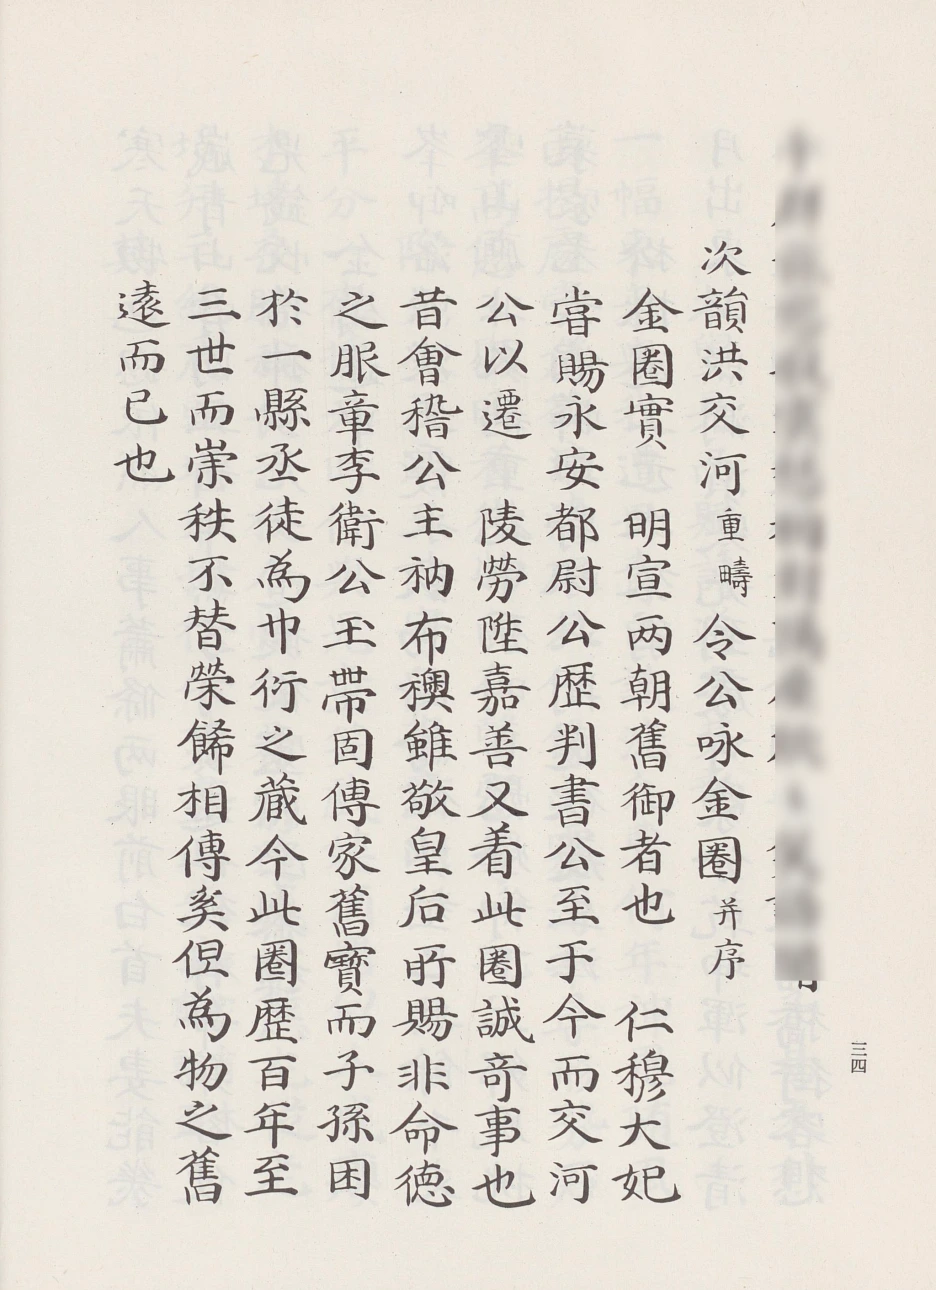 次韻洪交河重疇令公咏金圈并序
金圈實　明宣两朝舊御者也　仁穆大妃
甞賜永安都尉公歷判書公至于今而交河
公以遷　陵勞陞嘉善又着此圈誠竒事也
昔會稽公主衲布襖雖敬皇后所賜非命德
之服章李衛公玉帶固傳家舊寶而子孫困
於一縣丞徒為巾衍之蔵今此圈歷百年至
三世而崇秩不替榮餙相傳奚但為物之舊
逺而已也
三四